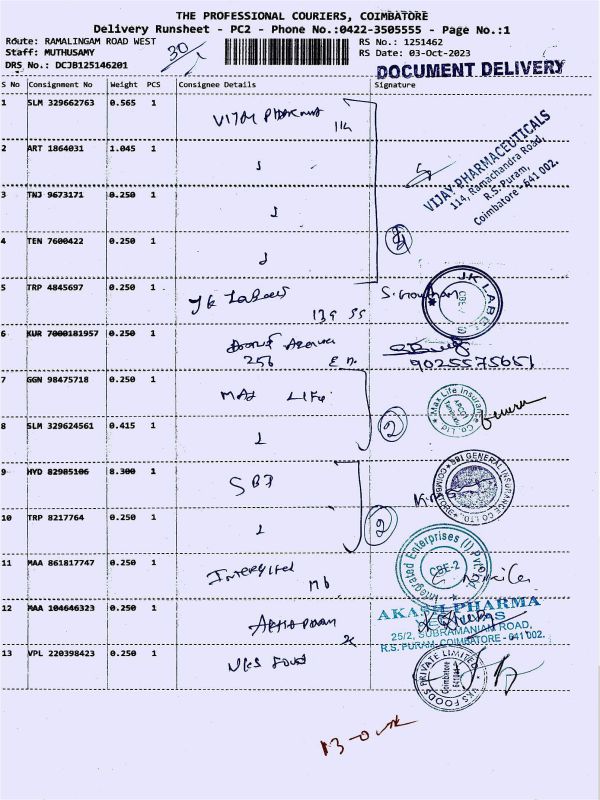 THE PROFESSIONAL COURIERS, COIMBATORE
Delivery Runsheet - PC2 - Phone No.:0422-3505555 - Page No.:1
Route: RAMALINGAM ROAD WEST
RS No.: 1251462
Staff: MUTHUSAMY
RS Date: 03-Oct-2023
DRS No.: DCJB125146201
30/1
DOCUMENT DELIVERY
S No Consignment No Weight PCS Consignee Details Signature
1 SLM 329662763 0.565 1 VIJAY 114
VIJAY PHARMACEUTICALS
114, Ramachandra Road,
R.S. Puram,
Coimbatore - 641 002.
2 ART 1864031 1.045 1
3 TNJ 9673171 0.250 1
4 TEN 7600422 0.250 1
4
5 TRP 4845697 0.250 1 JK
S. Gowtham
JK LABELS
6 KUR 7000181957 0.250 1
256
9025575651
7 GGN 98475718 0.250 1 MAX LIFE
Max Life Insurance Co. Ltd
8 SLM 329624561 0.415 1
2
9 HYD 82985106 8.300 1 SBI
SBI GENERAL INSURANCE CO LTD.
10 TRP 8217764 0.250 1
2
11 MAA 861817747 0.250 1 Integrated
Integrated Enterprises (I) Pvt Ltd
CBE-2
12 MAA 104646323 0.250 1
AKASH PHARMA
25/2, SUBRAMANIAM ROAD,
R.S. PURAM, COIMBATORE - 641 002.
13 VPL 220398423 0.250 1 VKS Food
VKS FOODS PRIVATE LIMITED
Coimbatore
13-